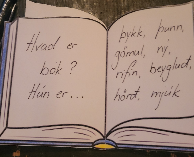 Hvað er
bók?
Hún er...
þykk, þunn,
gömul, ný,
rifin, beygluð,
hörð, mjúk